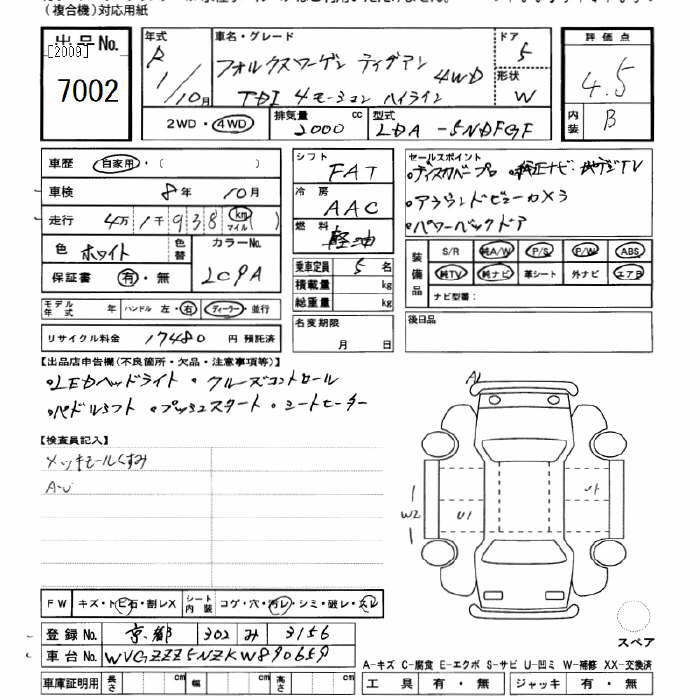 (複合機)対応用紙
出品No. [2009] 7002
年式 R 1/10月
車名・グレード フォルクスワーゲン ティグアン 4WD
TDI 4モーション ハイライン
ドア 5
形状 W
2WD・4WD 排気量 2000 cc 型式 LDA-5NDFGF
評価点 4.5
内装 B
車歴 自家用・( )
車検 8年 10月
走行 4万1千938 km マイル ( )
色 ホワイト 色替 カラーNo. LC9A
保証書 有・無
モデル年式 年 ハンドル 左・右 ディーラー・並行
リサイクル料金 17480 円 預託済
シフト FAT
冷房 AAC
燃料 軽油
乗車定員 5 名
積載量 kg
総重量 kg
名変期限 月 日
セールスポイント
・ディスカバープロ ・純正ナビ・地デジTV
・アラウンドビューカメラ
・パワーバックドア
装備品 S/R 純A/W P/S P/W ABS
純TV 純ナビ 革シート 外ナビ エアB
ナビ型番:
後日品
【出品店申告欄(不良箇所・欠品・注意事項等)】
・LEDヘッドライト ・クルーズコントロール
・パドルシフト ・プッシュスタート ・シートヒーター
【検査員記入】
メッキモールくすみ
A・U
A1
W2
U1
U1
スペア
FW キズ・トビ石・割レX シート内装 コゲ・穴・汚レ・シミ・破レ・スレ
登録No. 京都 302 み 3156
車台No. WVGZZZ5NZKW890659
車庫証明用 長さ cm 幅 cm 高さ cm
A-キズ C-腐食 E-エクボ S-サビ U-凹ミ W-補修 XX-交換済
工具 有・無 ジャッキ 有・無